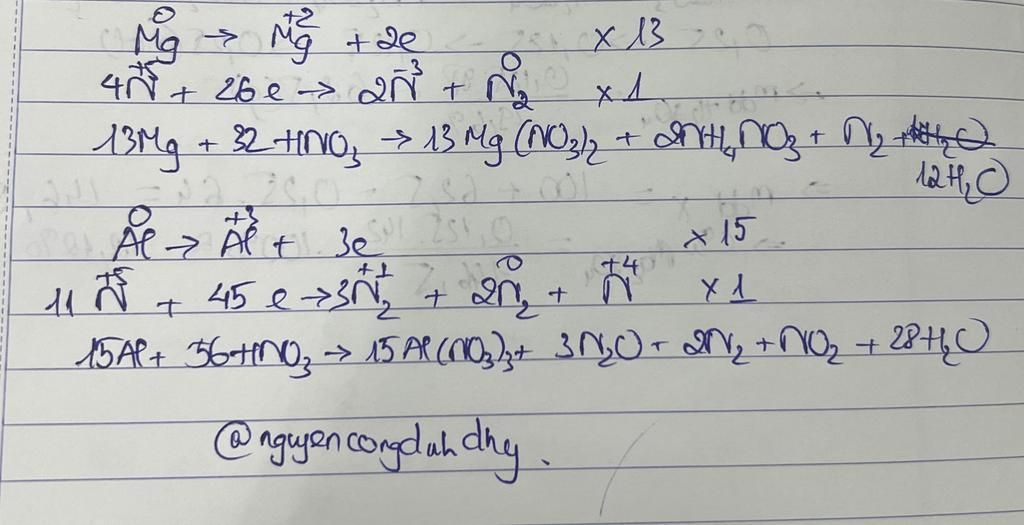 Mg⁰ → Mg⁺² + 2e × 13
4N⁺⁵ + 26e → 2N⁻³ + N₂⁰ × 1
13Mg + 32HNO₃ → 13Mg(NO₃)₂ + 2NH₄NO₃ + N₂ +
12H₂O
Al⁰ → Al⁺³ + 3e × 15
11N⁺⁵ + 45e → 3N₂⁺¹ + 2N₂⁰ + N⁺⁴ × 1
15Al + 56HNO₃ → 15Al(NO₃)₃ + 3N₂O + 2N₂ + NO₂ + 28H₂O
@nguyencongduhdhy.